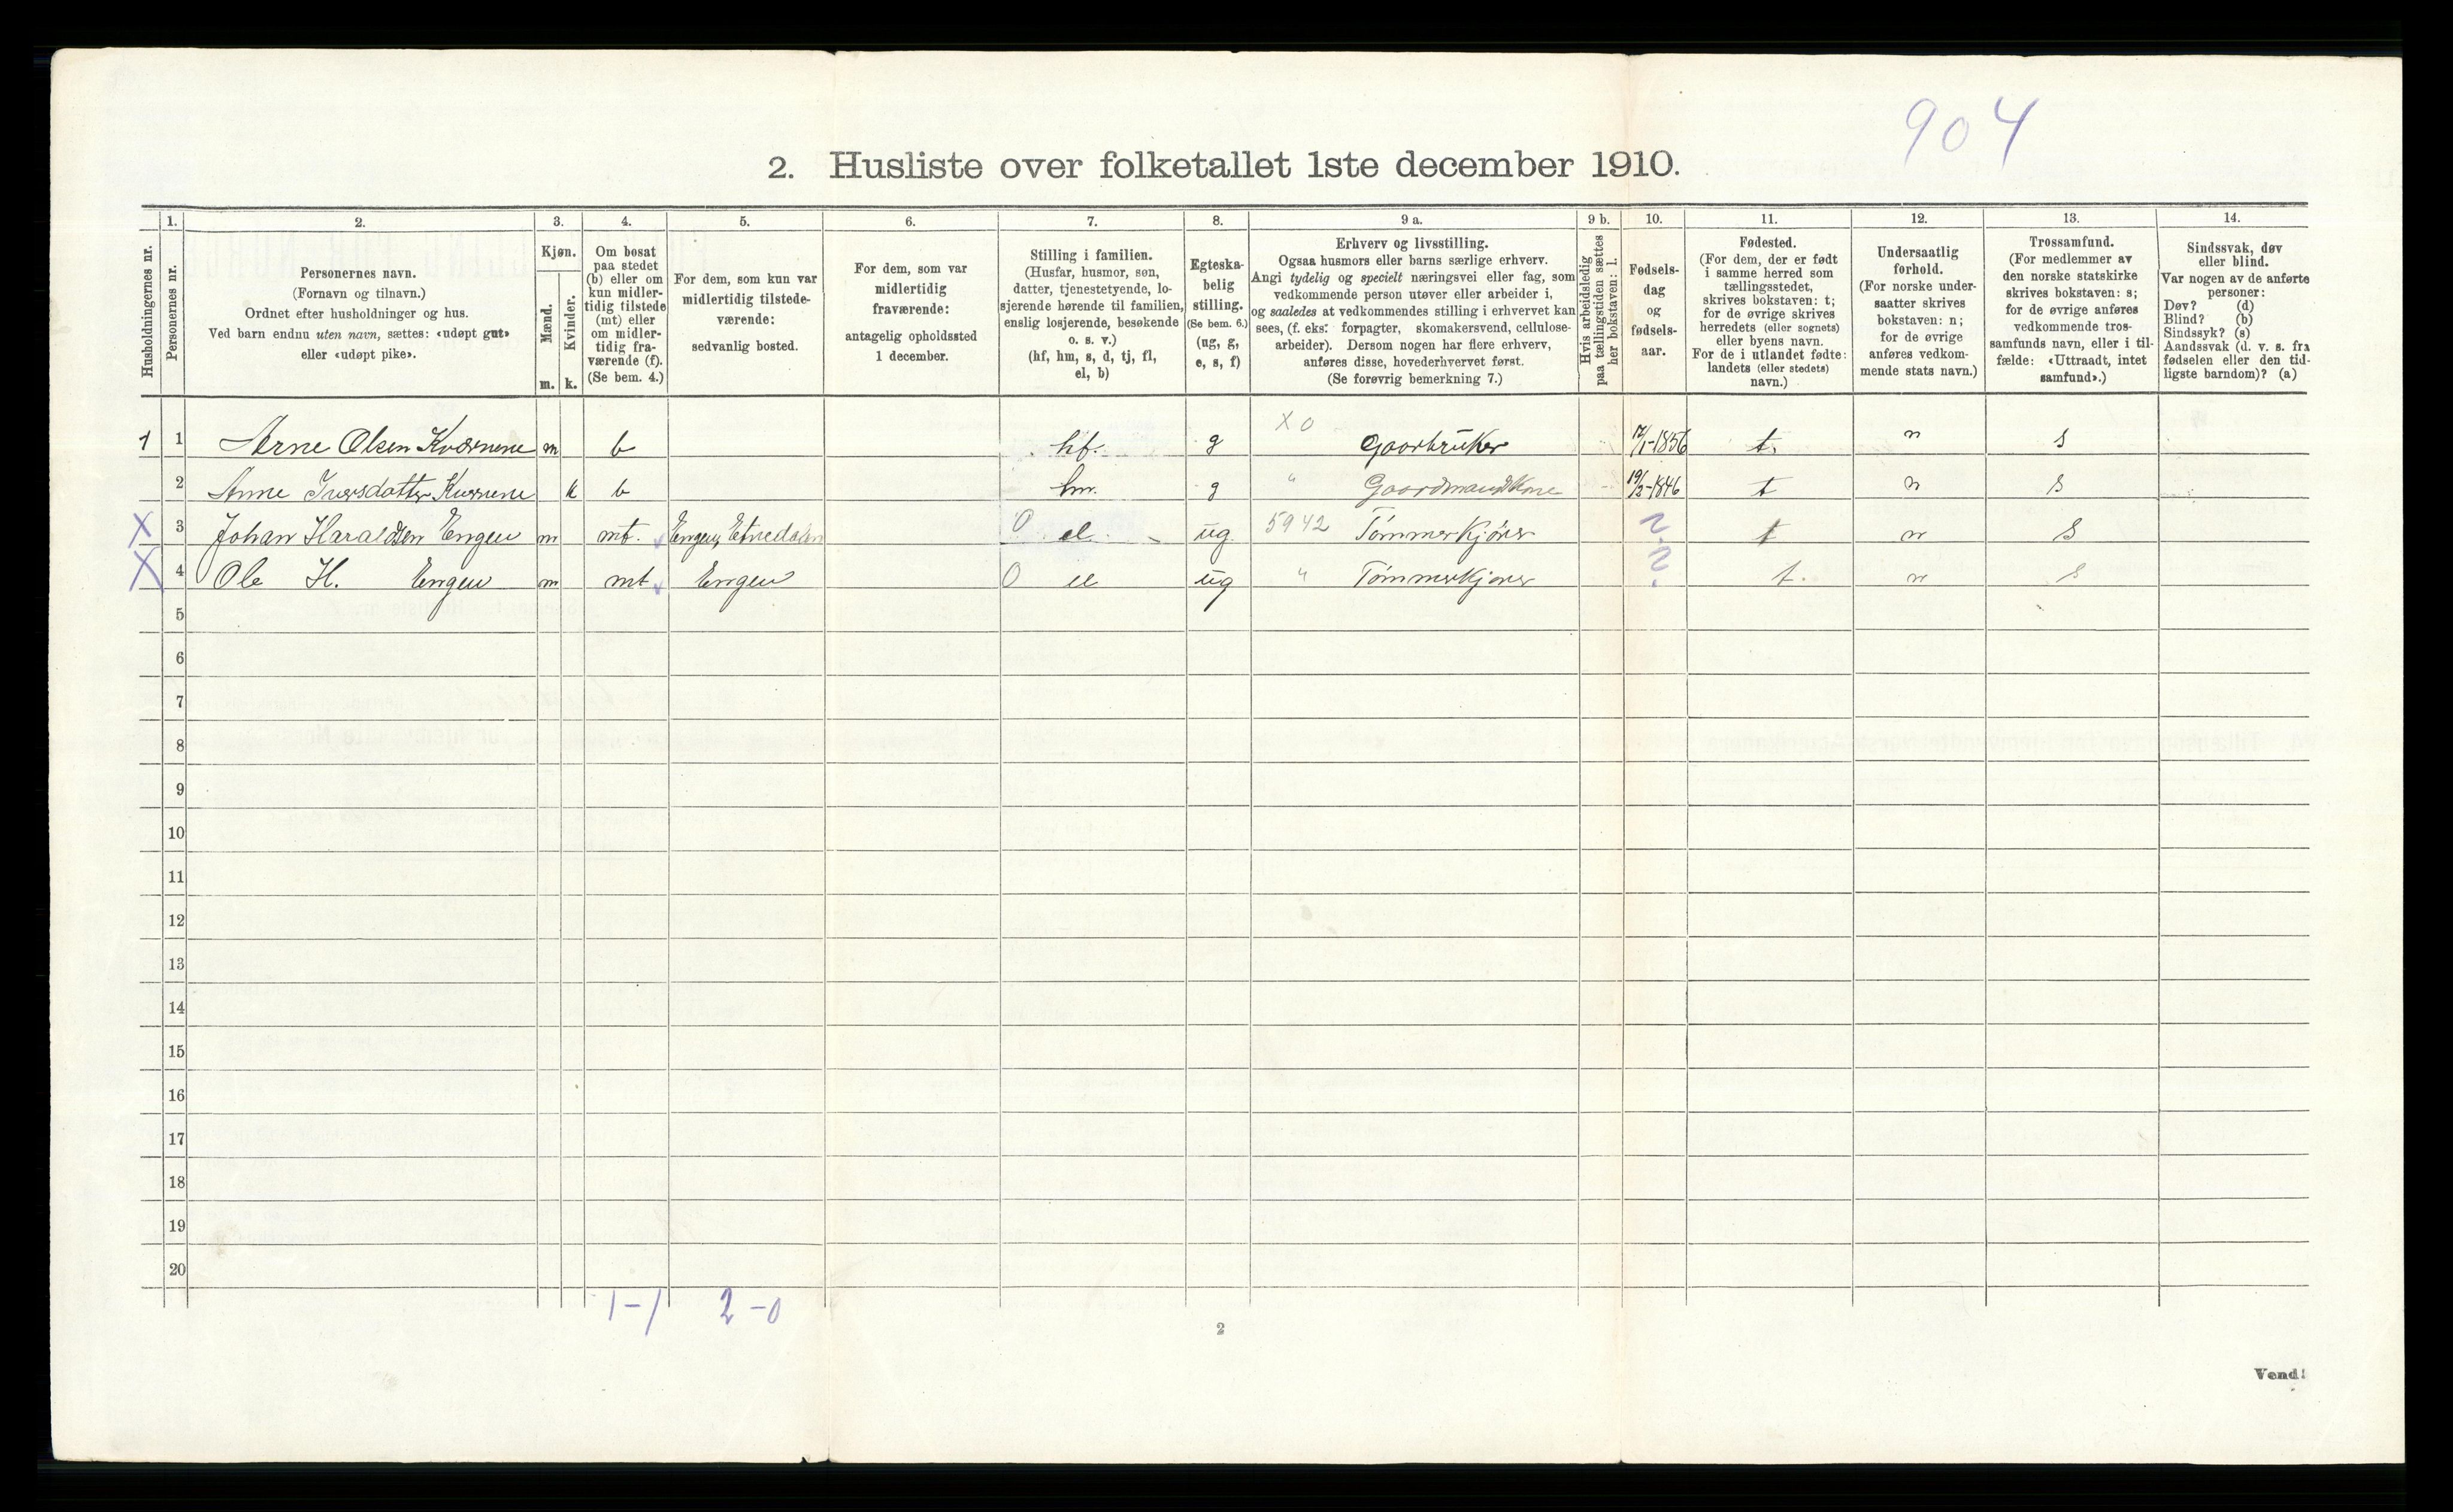 904
2. Husliste over folketallet 1ste december 1910.
Husholdningernes nr.
1. Personernes nr.
2. Personernes navn.
(Fornavn og tilnavn.)
Ordnet efter husholdninger og hus.
Ved barn endnu uten navn, sættes: «udøpt gut»
eller «udøpt pike».
3. Kjøn.
Mænd. m.
Kvinder. k.
4. Om bosat
paa stedet
(b) eller om
kun midler-
tidig tilstede
(mt) eller
om midler-
tidig fra-
værende (f).
(Se bem. 4.)
5. For dem, som kun var
midlertidig tilstede-
værende:
sedvanlig bosted.
6. For dem, som var
midlertidig
fraværende:
antagelig opholdssted
1 december.
7. Stilling i familien.
(Husfar, husmor, søn,
datter, tjenestetyende, lo-
sjerende hørende til familien,
enslig losjerende, besøkende
o. s. v.)
(hf, hm, s, d, tj, fl,
el, b)
8. Egteska-
belig
stilling.
(Se bem. 6.)
(ug, g,
e, s, f)
9 a. Erhverv og livsstilling.
Ogsaa husmors eller barns særlige erhverv.
Angi tydelig og specielt næringsvei eller fag, som
vedkommende person utøver eller arbeider i,
og saaledes at vedkommendes stilling i erhvervet kan
sees, (f. eks. forpagter, skomakersvend, cellulose-
arbeider). Dersom nogen har flere erhverv,
anføres disse, hovederhvervet først.
(Se forøvrig bemerkning 7.)
9 b. Hvis arbeidsledig
paa tællingstiden sættes
her bokstaven: l.
10. Fødsels-
dag
og
fødsels-
aar.
11. Fødested.
(For dem, der er født
i samme herred som
tællingsstedet,
skrives bokstaven: t;
for de øvrige skrives
herredets (eller sognets)
eller byens navn.
For de i utlandet fødte:
landets (eller stedets)
navn.)
12. Undersaatlig
forhold.
(For norske under-
saatter skrives
bokstaven: n;
for de øvrige
anføres vedkom-
mende stats navn.)
13. Trossamfund.
(For medlemmer av
den norske statskirke
skrives bokstaven: s;
for de øvrige anføres
vedkommende tros-
samfunds navn, eller i til-
fælde: «Uttraadt, intet
samfund».)
14. Sindssvak, døv
eller blind.
Var nogen av de anførte
personer:
Døv? (d)
Blind? (b)
Sindssyk? (s)
Aandssvak (d. v. s. fra
fødselen eller den tid-
ligste barndom)? (a)
1 1 Arne Olsen Kværnene m b hf. g X 0 Gaarbruker 17/1-1856 t. n s
2 Anne Iversdatter Kværnene k b hm. g " Gaardmandskone 19/2-1846 t n s
X 3 Johan Haraldsen Engen m mt. Engen, Etnedalen 0 el ug 5942 Tømmerkjører ? t n s
X 4 Ole H. Engen m mt Engen 0 el ug " Tømmerkjører ? t. n s
5
6
7
8
9
10
11
12
13
14
15
16
17
18
19
20
1-1 2-0
2
Vend!